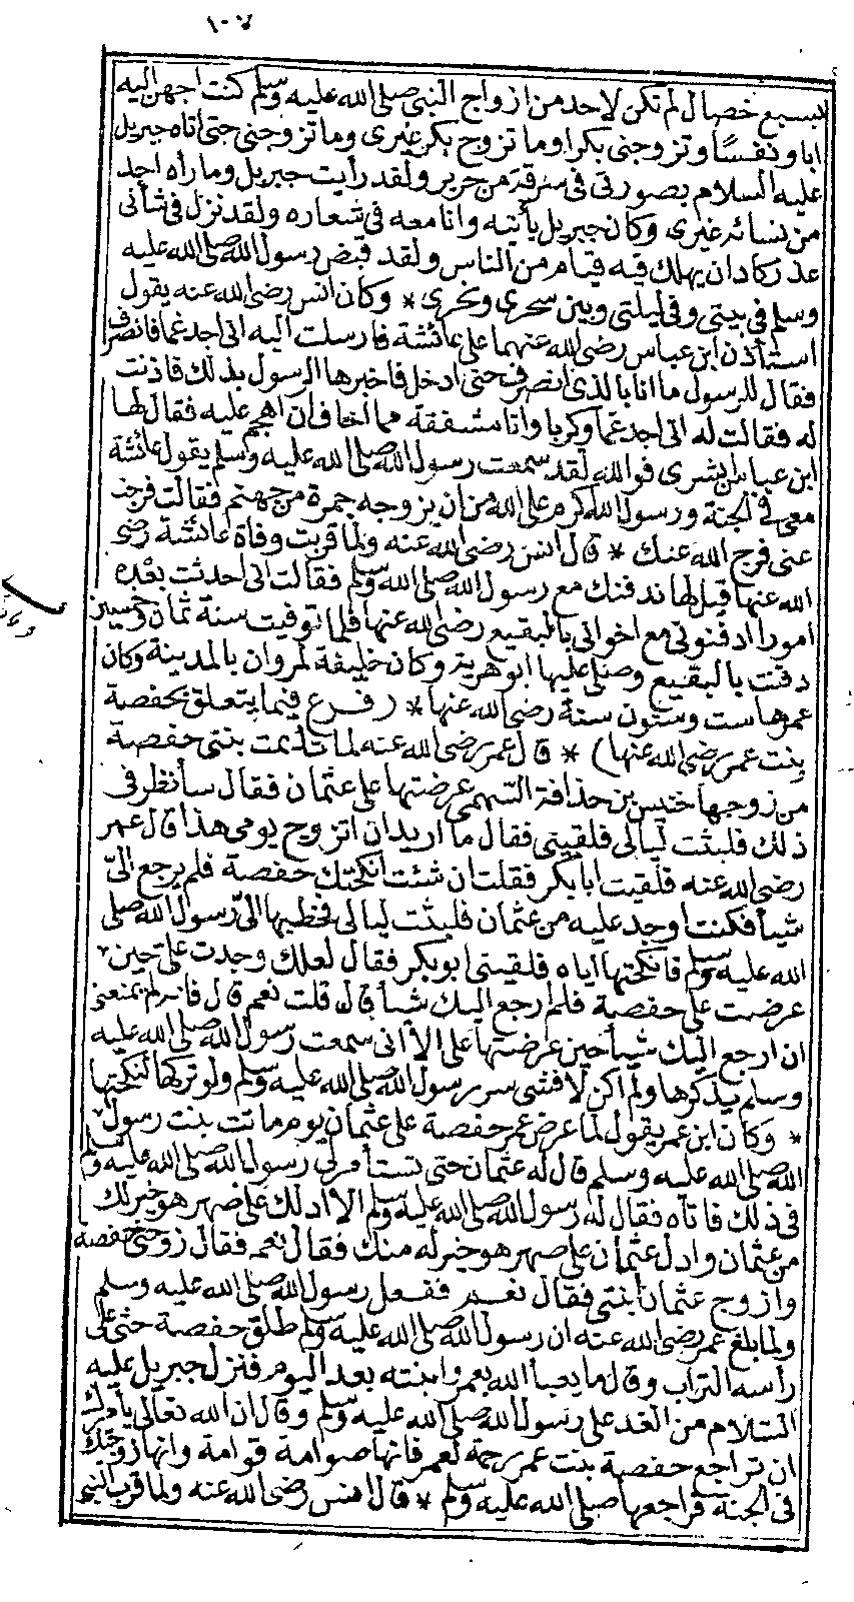 ١٠٧
بسبع خصال لم تكن لاحد من ازواج النبي صلى الله عليه وسلم كنت احبهن اليه
ابا ونفسا وتزوجنى بكرا وما تزوج بكر غيرى وما تزوجنى حتى اتاه جبريل
عليه السلام بصورتى فى سرقة من حرير ولقد رأيت جبريل وما رأه احد
من نسائه غيرى وكان جبريل يأتيه وانا معه فى شعاره ولقد نزل فى شأنى
عذر كاد ان يهلك فيه قيام من الناس ولقد قبض رسول الله صلى الله عليه
وسلم فى بيتى وفى ليلتى وبين سحرى ونحرى * وكان انس رضى الله عنه يقول
استأذن ابن عباس رضى الله عنهما على عائشة فارسلت اليه انى اجد غما فانصرف
فقال للرسول ما انا بالذى انصرف حتى ادخل فاخبرها الرسول بذلك فاذنت
له فقالت له انى اجد غما وكربا وانا مشفقة مما اخاف ان اهجم عليه فقال لها
ابن عباس ابشرى فوالله لقد سمعت رسول الله صلى الله عليه وسلم يقول عائشة
معى فى الجنة ورسول الله اكرم على الله من ان يزوجه جمرة من جهنم فقالت فرجت
عنى فرج الله عنك * قال انس رضى الله عنه ولما قربت وفاة عائشة رضى
الله عنها قيل لها ندفنك مع رسول الله صلى الله وسلم فقالت انى احدثت بعده
امورا ادفنونى مع اخواتى بالبقيع رضى الله عنها فلما توفيت سنة ثمان وخمسين
دفنت بالبقيع وصلى عليها ابو هريرة وكان خليفة لمروان بالمدينة وكان
عمرها ست وستون سنة رضى الله عنها * (فرع فيما يتعلق بحفصة
بنت عمر رضى الله عنها) * قال عمر رضى الله عنه لما تأيمت بنتى حفصة
من زوجها خنيس بن حذافة السهمى عرضتها على عثمان فقال سأنظر فى
ذلك فلبثت ليالى فلقينى فقال ما اريد ان اتزوج يومى هذا قال عمر
رضى الله عنه فلقيت ابا بكر فقلت ان شئت انكحتك حفصة فلم يرجع الىّ
شيأ فكنت اوجد عليه من عثمان فلبثت ليالى فخطبها الىّ رسول الله صلى
الله عليه وسلم فانكحتها اياه فلقينى ابو بكر فقال لعلك وجدت علىّ حين
عرضت على حفصة فلم ارجع اليك شيأ قال قلت نعم قال فانه لم يمنعنى
ان ارجع اليك شيأ حين عرضتها على الا انى سمعت رسول الله صلى الله عليه
وسلم يذكرها ولم اكن لافشى سر رسول الله صلى الله عليه وسلم ولو تركها لنكحتها
* وكان ابن عمر يقول لما عرض عمر حفصة على عثمان يوم ماتت بنت رسول
الله صلى الله عليه وسلم قال له عثمان حتى تستأمر لى رسول الله صلى الله عليه وسلم
فى ذلك فاتاه فقال له رسول الله صلى الله عليه وسلم الا ادلك على صهر هو خير لك
من عثمان وادل عثمان على صهر هو خير له منك فقال نعم فقال زوجنى حفصة
وازوج عثمان ابنتى فقال نعم ففعل رسول الله صلى الله عليه وسلم
ولما بلغ عمر رضى الله عنه ان رسول الله صلى الله عليه وسلم طلق حفصة حثى على
رأسه التراب وقال ما يعبأ الله بعمر وابنته بعد اليوم فنزل جبريل عليه
السلام من الغد على رسول الله صلى الله عليه وسلم وقال ان الله تعالى يأمرك
ان تراجع حفصة بنت عمر رحمة لعمر فانها صوامة قوامة وانها زوجتك
فى الجنة فراجعها صلى الله عليه وسلم * قال انس رضى الله عنه ولما قرب النبي